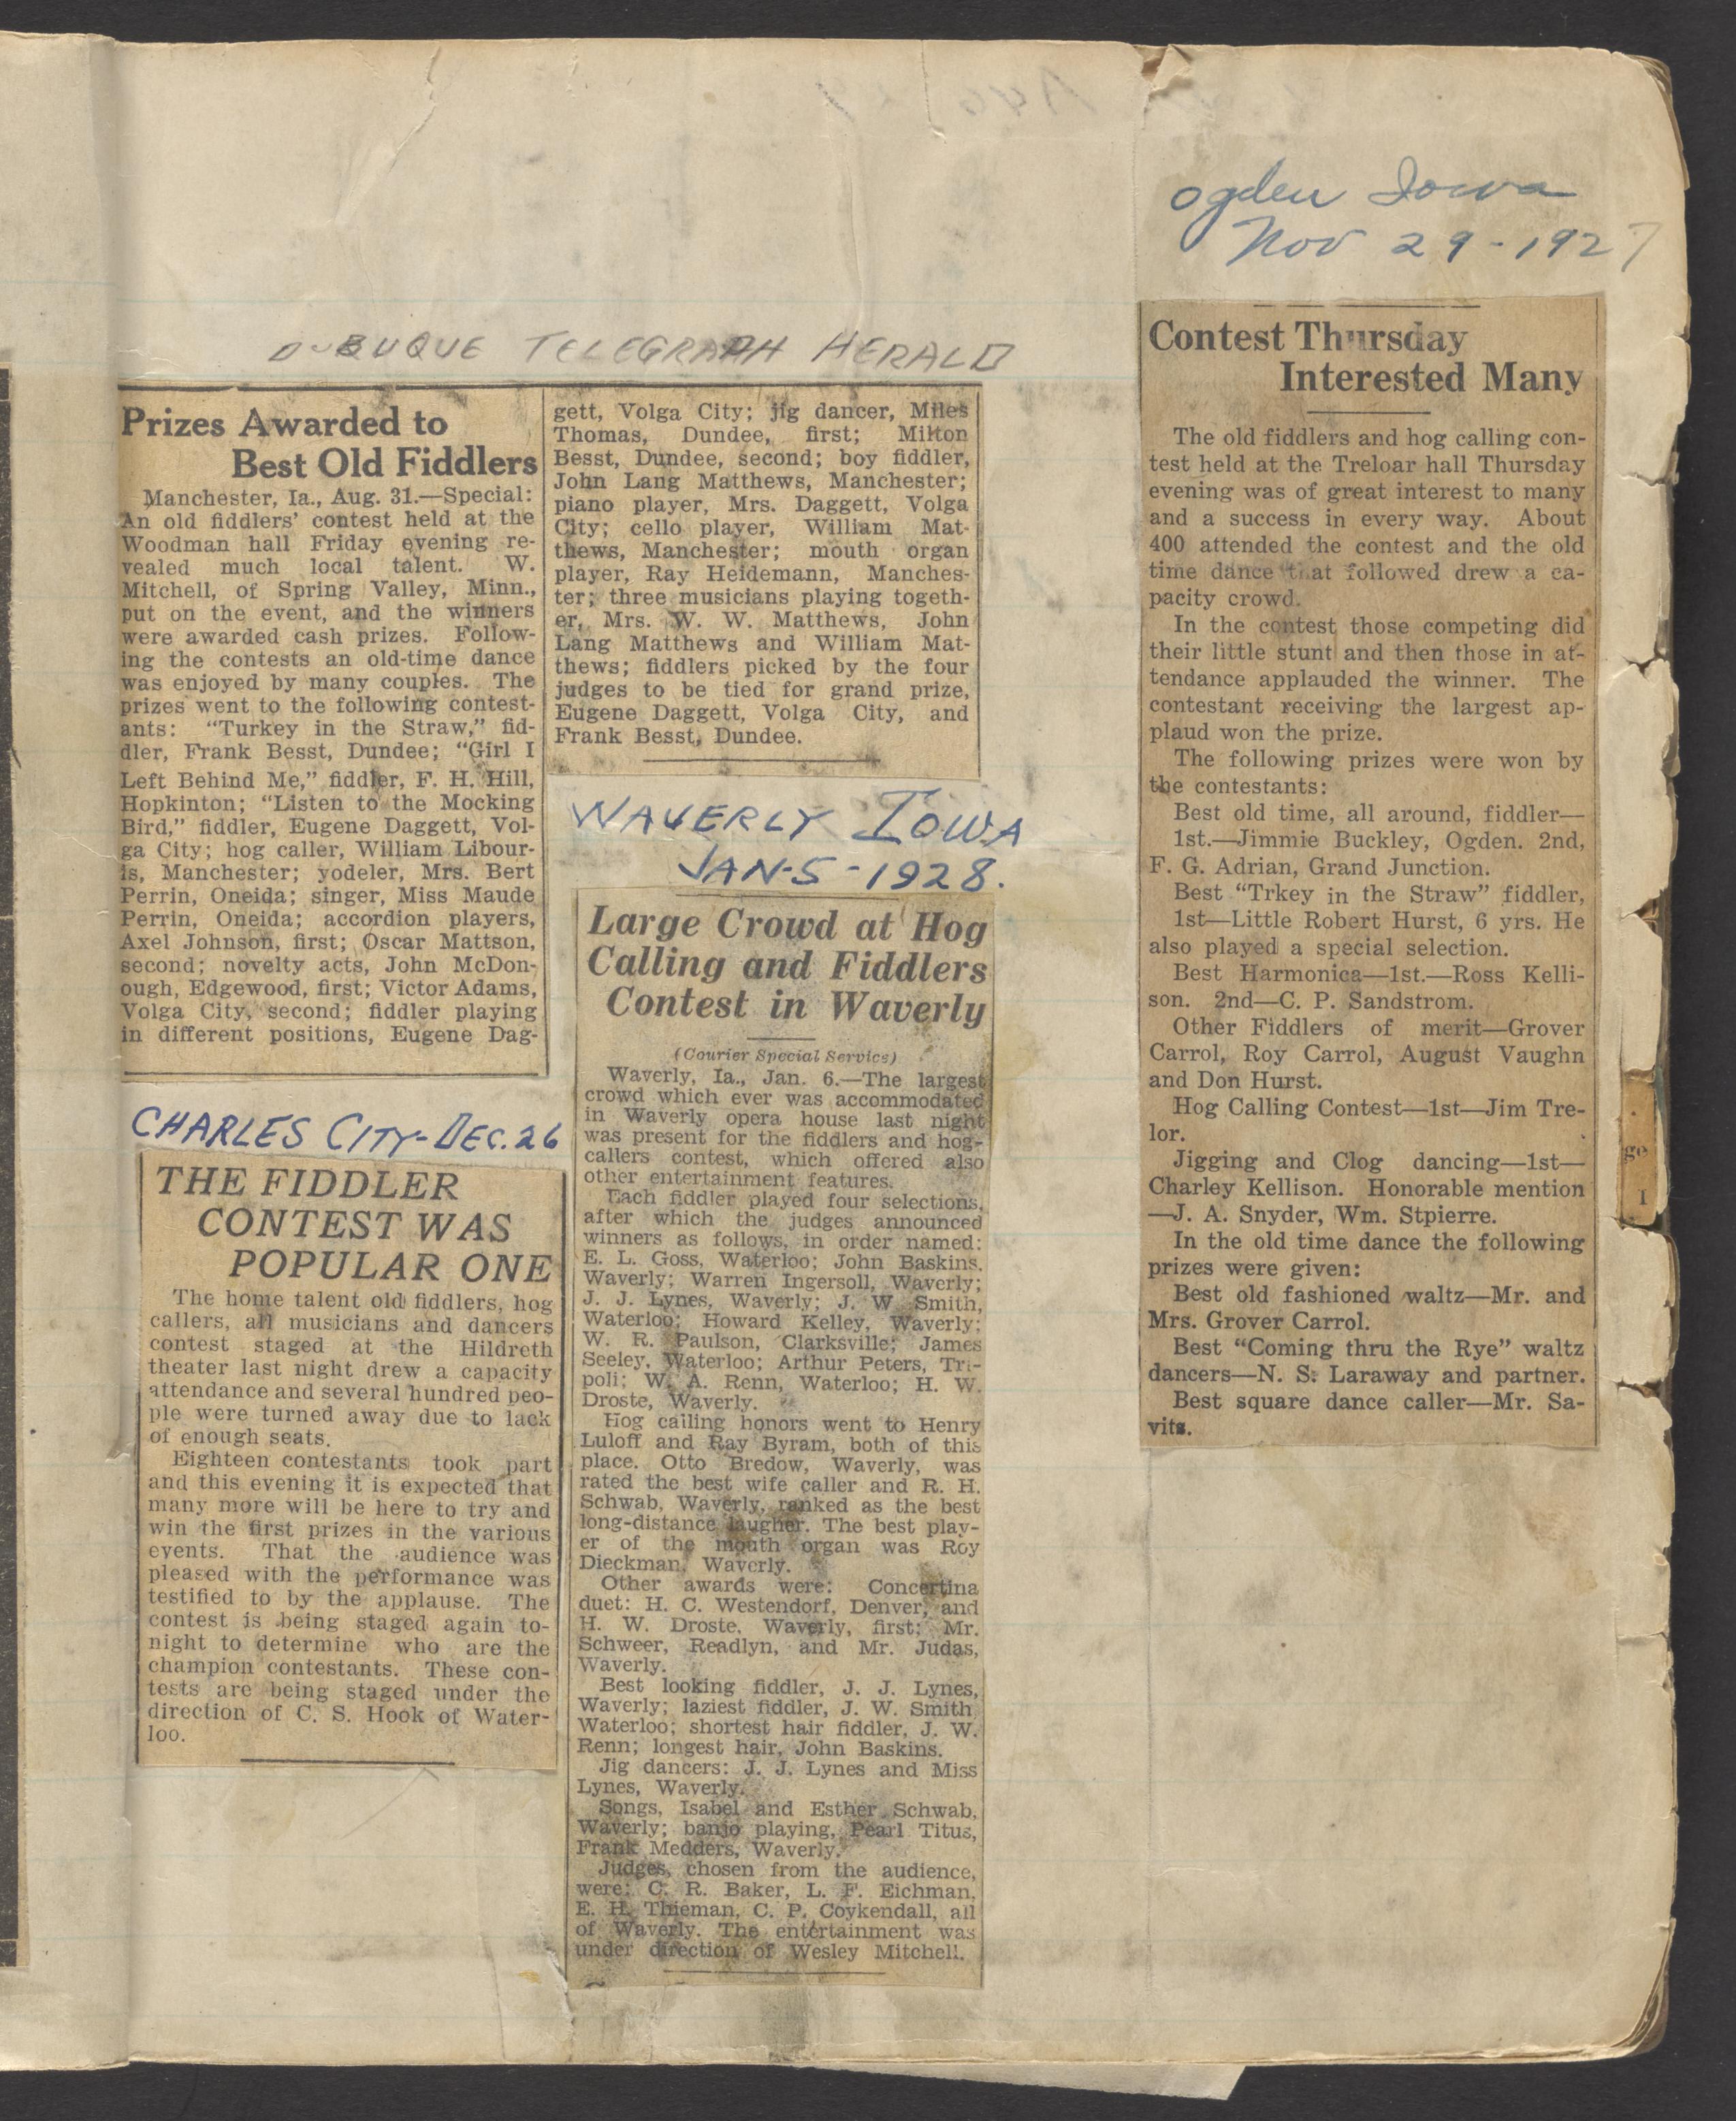 DUBUQUE TELEGRAPH HERALD
Prizes Awarded to
Best Old Fiddlers
Manchester, Ia., Aug. 31.—Special:
An old fiddlers' contest held at the
Woodman hall Friday evening re-
vealed much local talent. W.
Mitchell, of Spring Valley, Minn.,
put on the event, and the winners
were awarded cash prizes. Follow-
ing the contests an old-time dance
was enjoyed by many couples. The
prizes went to the following contest-
ants: "Turkey in the Straw," fid-
dler, Frank Besst, Dundee; "Girl I
Left Behind Me," fiddler, F. H. Hill,
Hopkinton; "Listen to the Mocking
Bird," fiddler, Eugene Daggett, Vol-
ga City; hog caller, William Libour-
is, Manchester; yodeler, Mrs. Bert
Perrin, Oneida; singer, Miss Maude
Perrin, Oneida; accordion players,
Axel Johnson, first; Oscar Mattson,
second; novelty acts, John McDon-
ough, Edgewood, first; Victor Adams,
Volga City, second; fiddler playing
in different positions, Eugene Dag-
gett, Volga City; jig dancer, Miles
Thomas, Dundee, first; Milton
Besst, Dundee, second; boy fiddler,
John Lang Matthews, Manchester;
piano player, Mrs. Daggett, Volga
City; cello player, William Mat-
thews, Manchester; mouth organ
player, Ray Heidemann, Manches-
ter; three musicians playing togeth-
er, Mrs. W. W. Matthews, John
Lang Matthews and William Mat-
thews; fiddlers picked by the four
judges to be tied for grand prize,
Eugene Daggett, Volga City, and
Frank Besst, Dundee.
CHARLES CITY-DEC. 26
THE FIDDLER
CONTEST WAS
POPULAR ONE
The home talent old fiddlers, hog
callers, all musicians and dancers
contest staged at the Hildreth
theater last night drew a capacity
attendance and several hundred peo-
ple were turned away due to lack
of enough seats.
Eighteen contestants took part
and this evening it is expected that
many more will be here to try and
win the first prizes in the various
events. That the audience was
pleased with the performance was
testified to by the applause. The
contest is being staged again to-
night to determine who are the
champion contestants. These con-
tests are being staged under the
direction of C. S. Hook of Water-
loo.
WAVERLY IOWA
JAN-5-1928.
Large Crowd at Hog
Calling and Fiddlers
Contest in Waverly
(Courier Special Service)
Waverly, Ia., Jan. 6.—The largest
crowd which ever was accommodated
in Waverly opera house last night
was present for the fiddlers and hog-
callers contest, which offered also
other entertainment features.
Each fiddler played four selections,
after which the judges announced
winners as follows, in order named:
E. L. Goss, Waterloo; John Baskins,
Waverly; Warren Ingersoll, Waverly;
J. J. Lynes, Waverly; J. W. Smith,
Waterloo; Howard Kelley, Waverly;
W. R. Paulson, Clarksville; James
Seeley, Waterloo; Arthur Peters, Tri-
poli; W. A. Renn, Waterloo; H. W.
Droste, Waverly.
Hog calling honors went to Henry
Luloff and Ray Byram, both of this
place. Otto Bredow, Waverly, was
rated the best wife caller and R. H.
Schwab, Waverly, ranked as the best
long-distance laugher. The best play-
er of the mouth organ was Roy
Dieckman, Waverly.
Other awards were: Concertina
duet: H. C. Westendorf, Denver, and
H. W. Droste, Waverly, first; Mr.
Schweer, Readlyn, and Mr. Judas,
Waverly.
Best looking fiddler, J. J. Lynes,
Waverly; laziest fiddler, J. W. Smith,
Waterloo; shortest hair fiddler, J. W.
Renn; longest hair, John Baskins.
Jig dancers: J. J. Lynes and Miss
Lynes, Waverly.
Songs, Isabel and Esther Schwab,
Waverly; banjo playing, Pearl Titus,
Frank Medders, Waverly.
Judges, chosen from the audience,
were: C. R. Baker, L. F. Eichman,
E. H. Thieman, C. P. Coykendall, all
of Waverly. The entertainment was
under direction of Wesley Mitchell.
Ogden Iowa
Nov 29-1927
Contest Thursday
Interested Many
The old fiddlers and hog calling con-
test held at the Treloar hall Thursday
evening was of great interest to many
and a success in every way. About
400 attended the contest and the old
time dance that followed drew a ca-
pacity crowd.
In the contest those competing did
their little stunt and then those in at-
tendance applauded the winner. The
contestant receiving the largest ap-
plaud won the prize.
The following prizes were won by
the contestants:
Best old time, all around, fiddler—
1st.—Jimmie Buckley, Ogden. 2nd,
F. G. Adrian, Grand Junction.
Best "Trkey in the Straw" fiddler,
1st—Little Robert Hurst, 6 yrs. He
also played a special selection.
Best Harmonica—1st.—Ross Kelli-
son. 2nd—C. P. Sandstrom.
Other Fiddlers of merit—Grover
Carrol, Roy Carrol, August Vaughn
and Don Hurst.
Hog Calling Contest—1st—Jim Tre-
lor.
Jigging and Clog dancing—1st—
Charley Kellison. Honorable mention
—J. A. Snyder, Wm. Stpierre.
In the old time dance the following
prizes were given:
Best old fashioned waltz—Mr. and
Mrs. Grover Carrol.
Best "Coming thru the Rye" waltz
dancers—N. S. Laraway and partner.
Best square dance caller—Mr. Sa-
vits.
ge
I